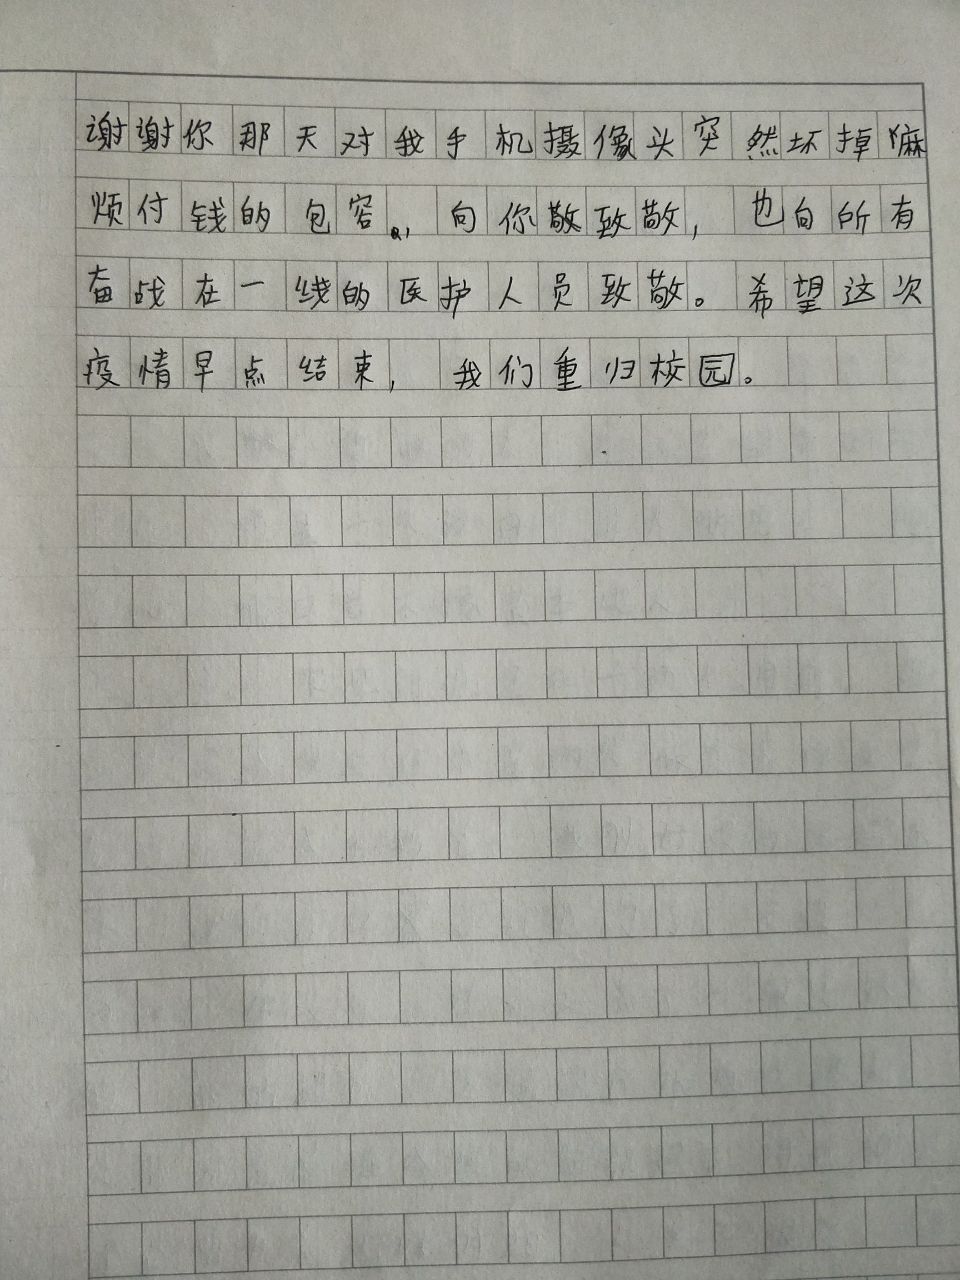 谢谢你那天对我手机摄像头突然坏掉嘛
烦付钱的包容,向你敬致敬,也向所有
奋战在一线的医护人员致敬。希望这次
疫情早点结束,我们重归校园。